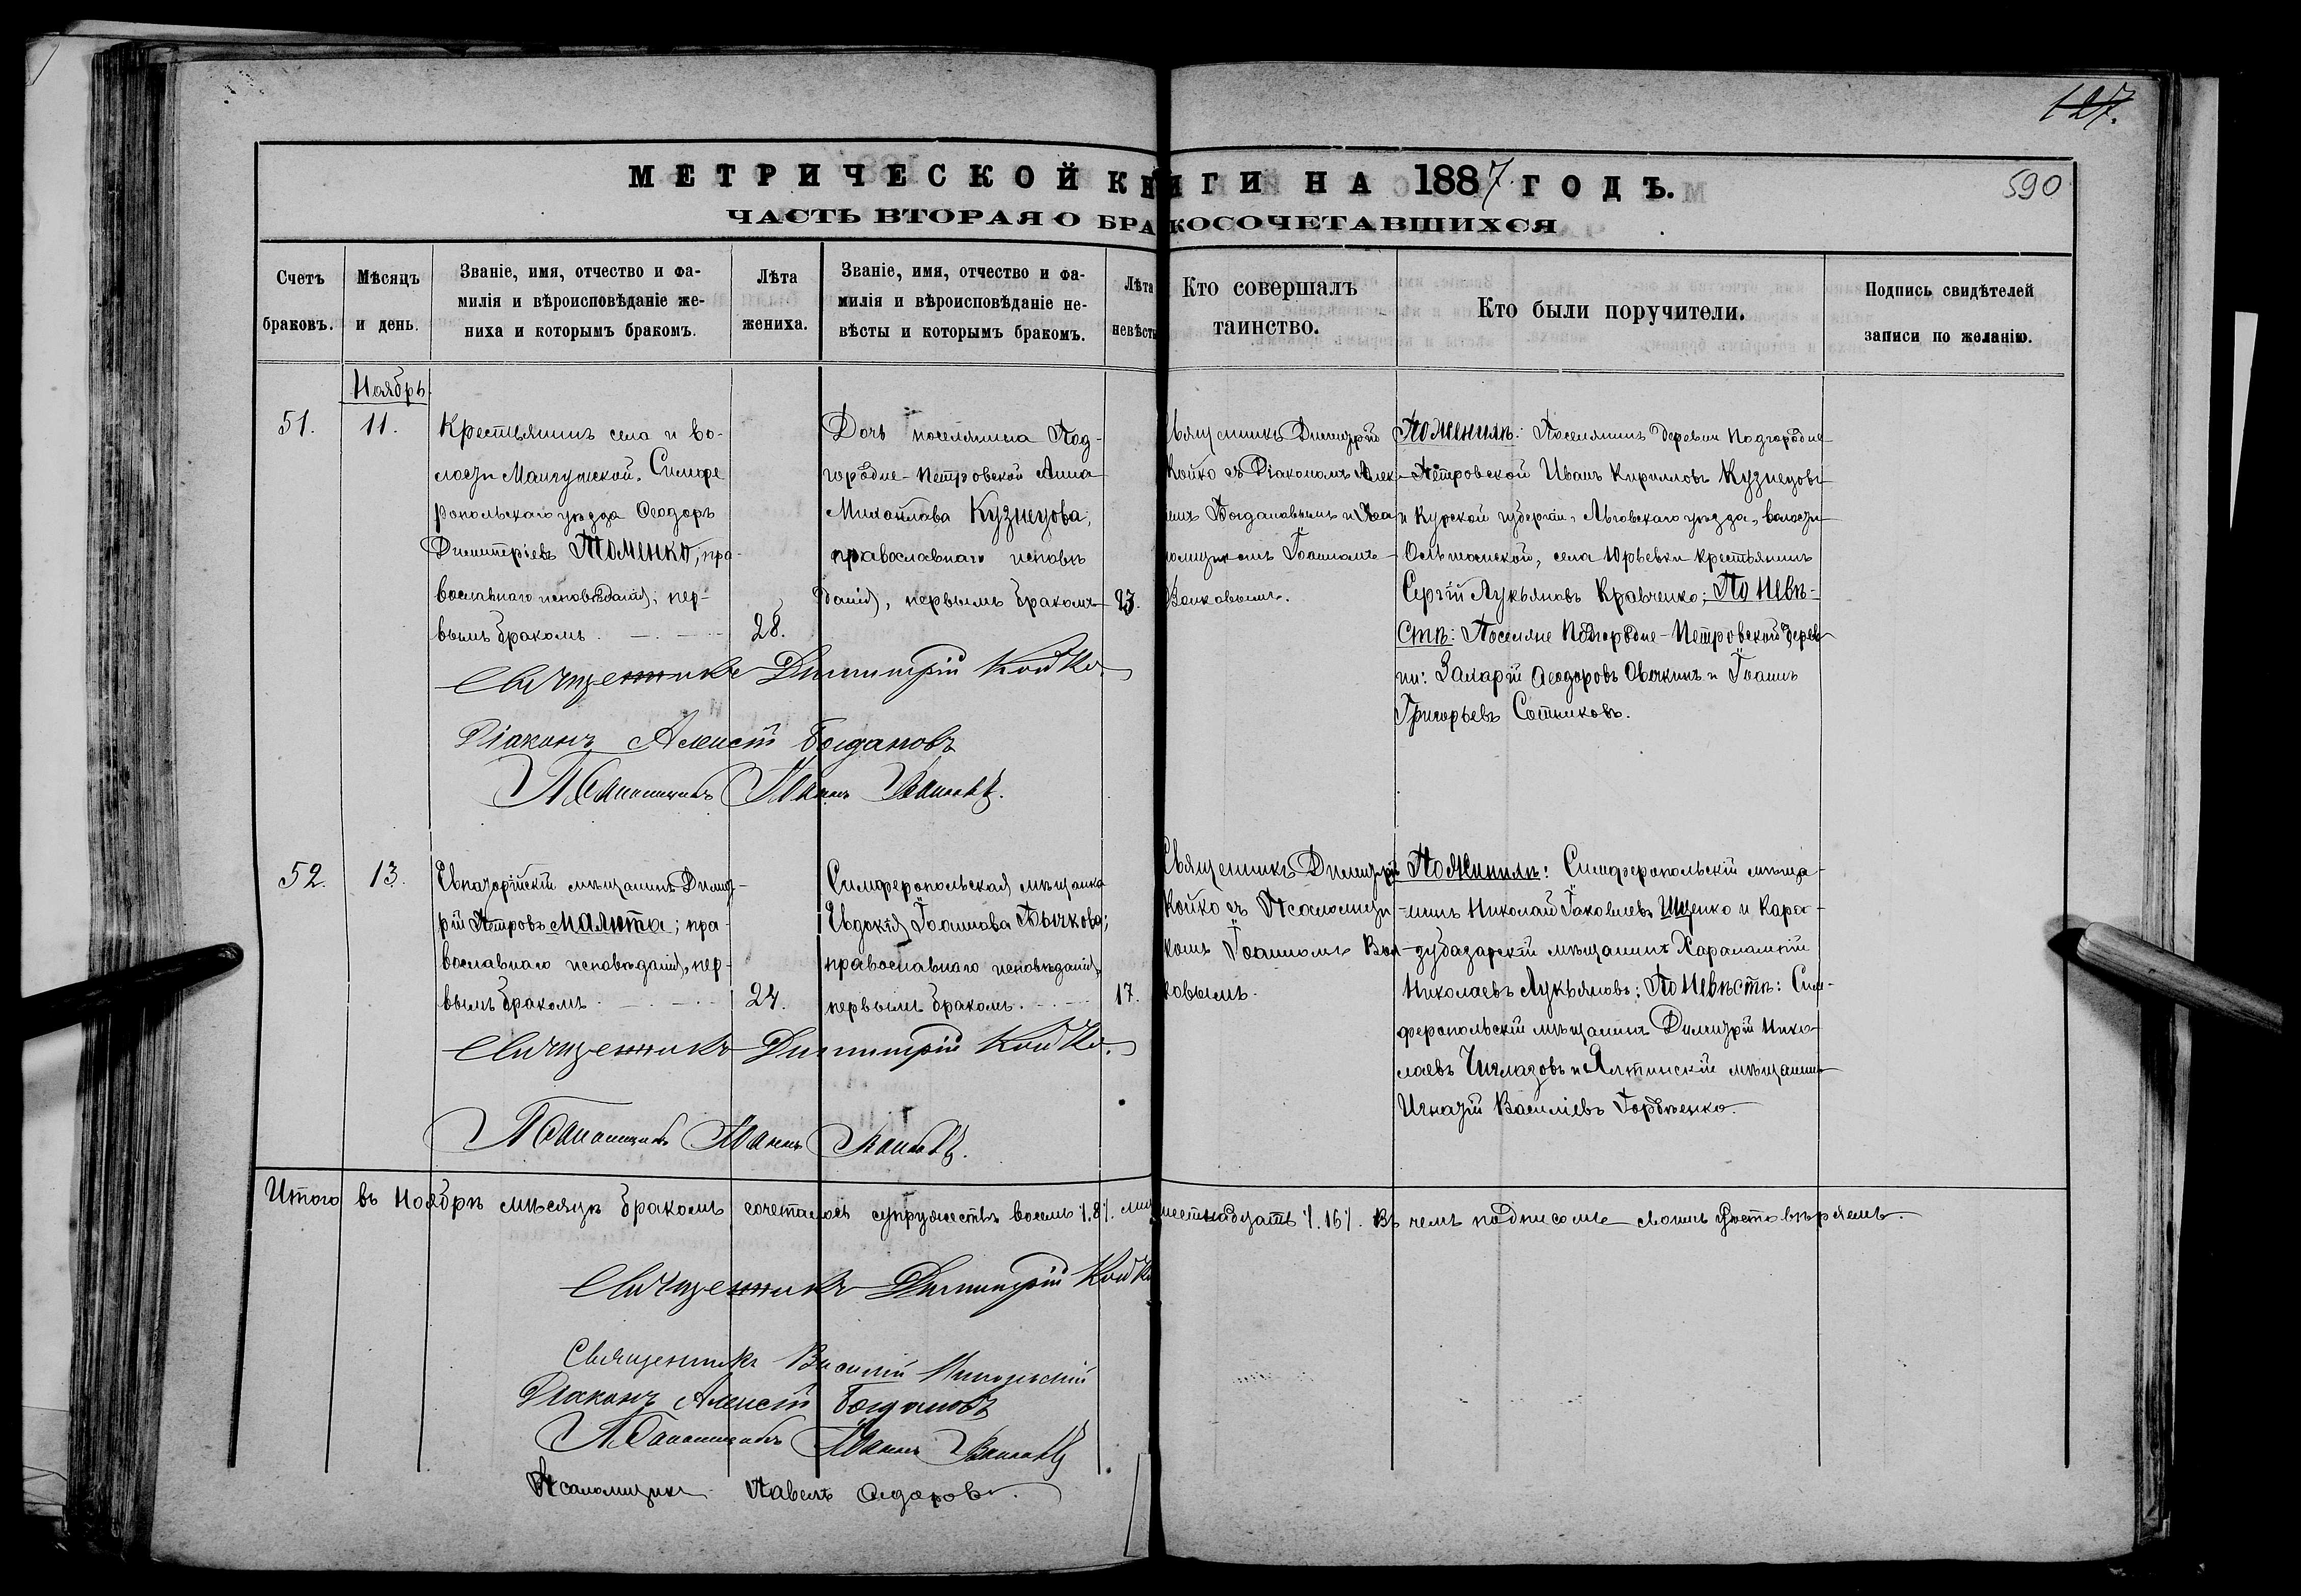 127.
590
МЕТРИЧЕСКОЙ КНИГИ НА 1887 ГОДЪ.
ЧАСТЬ ВТОРАЯ О БРАКОСОЧЕТАВШИХСЯ
Счетъ
браковъ.
Мѣсяцъ
и день.
Званіе, имя, отчество и фа-
милія и вѣроисповѣданіе же-
ниха и которымъ бракомъ.
Лѣта
жениха.
Званіе, имя, отчество и фа-
милія и вѣроисповѣданіе не-
вѣсты и которымъ бракомъ.
Лѣта
невѣсты
Кто совершалъ
таинство.
Кто были поручители.
Подпись свидѣтелей
записи по желанію.
Ноябрь.
51.
11.
Крестьянинъ села и во-
лости Мангушской, Симфе
ропольскаго уѣзда Ѳеодоръ
Димитріевъ Томенко, пра-
вославнаго исповѣданія; пер-
вымъ бракомъ.
28.
Дочь поселянина Под-
городне-Петровской Анна
Михайлова Кузнецова,
православнаго исповѣ
данія, первымъ бракомъ
23.
Священникъ Димитрій
Койко съ Діакономъ Алек-
емъ Богдановымъ и Пса
ломщикомъ Іоанномъ
Волковымъ.
По Женихѣ: Поселянинъ деревни Подгородне
Петровской Иванъ Кирилловъ Кузнецовъ
и Курской губерніи, Льговскаго уѣзда, волости
села Юрьевки крестьянинъ
Сергій Лукьяновъ Кравченко; По Невѣ-
стѣ: Поселяне Подгородне-Петровской дерев
ни: Захарій Ѳеодоровъ Овечкинъ и Іоаннъ
Григорьевъ Сотниковъ.
Священникъ Димитрій Койко.
Діаконъ Алексій Богдановъ
Псаломщикъ Иванъ Волковъ.
52.
13.
Евпаторійскій мѣщанинъ Димит-
рій Петровъ Малюта; пра-
вославнаго исповѣданія, пер-
вымъ бракомъ
24.
Симферопольская мѣщанка
Евдокія Іоаннова Бычкова;
православнаго исповѣданія,
первымъ бракомъ.
17.
Священникъ Димитрій
Койко съ Псаломщи-
комъ Іоанномъ Вол-
ковымъ.
По Женихѣ: Симферопольскій мѣща-
нинъ Николай Іаковлевъ Ищенко и Кара-
зубазарскій мѣщанинъ Харалампій
Николаевъ Лукьяновъ; По Невѣстѣ: Сим-
феропольскій мѣщанинъ Димитрій Нико-
лаевъ и Ялтинскій мѣщанинъ
Игнатій Василіевъ Горбенко.
Священникъ Димитрій Койко.
Псаломщикъ Иванъ Волковъ.
Итого въ Ноябрѣ мѣсяцѣ бракомъ сочеталось супружествъ восемь /.8/. лицъ шестнадцать /.16/. Въ чемъ подписомъ своимъ удостовѣряемъ.
Священникъ Димитрій Койко
Священникъ Василій Никольскій
Діаконъ Алексій Богдановъ
Псаломщикъ Иванъ Волковъ
Псаломщикъ Павелъ Ѳедоровъ.